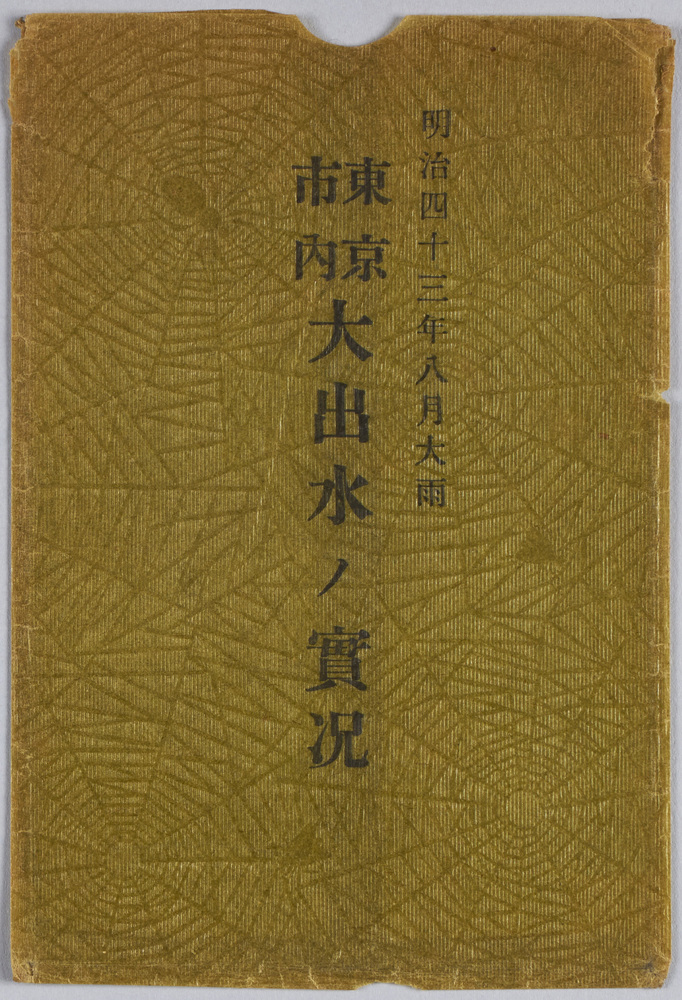 明治四十三年八月大雨
東京市內大出水ノ實况